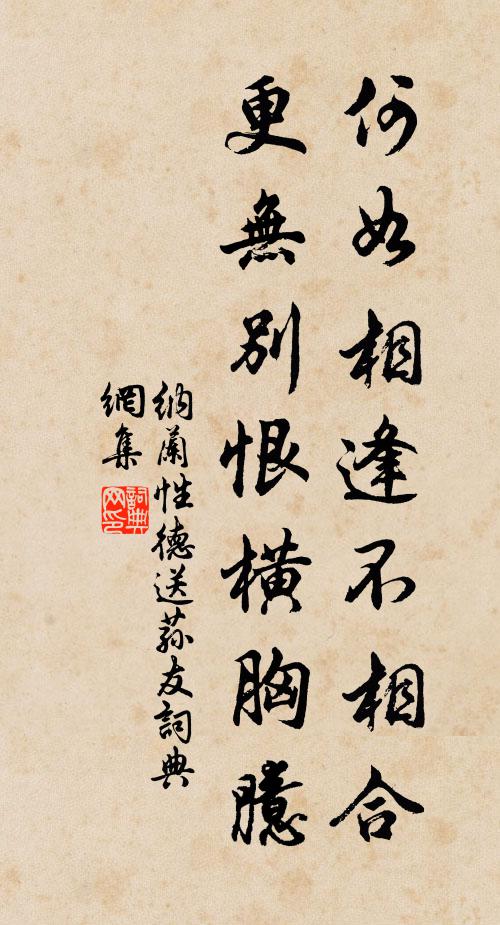 何如相逢不相合
更無別恨橫胸臆
納蘭性德送蓀友詞典
網集
詞典
网印